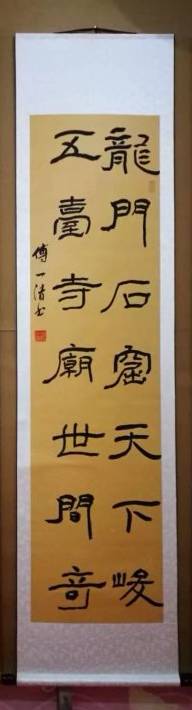 龍門石窟天下峻
五臺寺廟世間奇
傅一清书